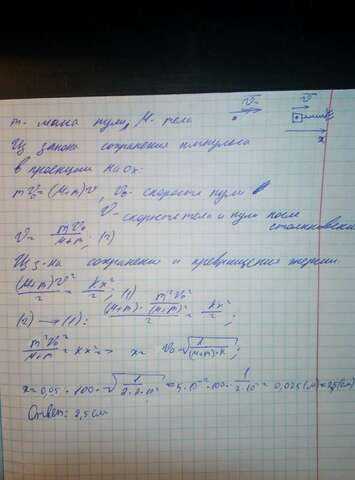 V₀ V
m - масса пули, M - тела
x
Из закона сохранения импульса
в проекции на Ox:
mV₀ = (M+m)V, V₀ - скорость пули
V - скорость тела и пули после столкновения
V = mV₀/(M+m); (2)
Из з-на сохранения и превращения энергии
(M+m)V²/2 = kx²/2; (1)
(2) → (1): (M+m)·m²V₀²/(M+m)²/2 = kx²/2;
m²V₀²/(M+m) = kx² => x = V₀ √(1/((M+m)·k));
x = 0,05 · 100 · = 5·10⁻² · 100 · = 0,025 (м) = 2,5 (см)
Ответ: 2,5 см